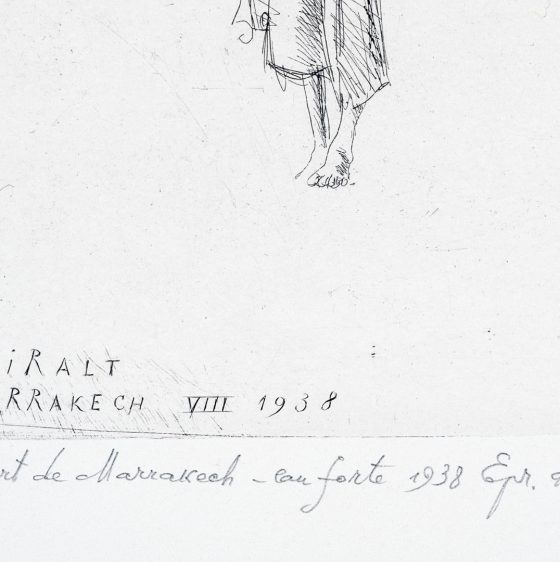 iRALT
RRAKECH VIII 1938
rt de Marrakech - eau forte 1938 Epr.